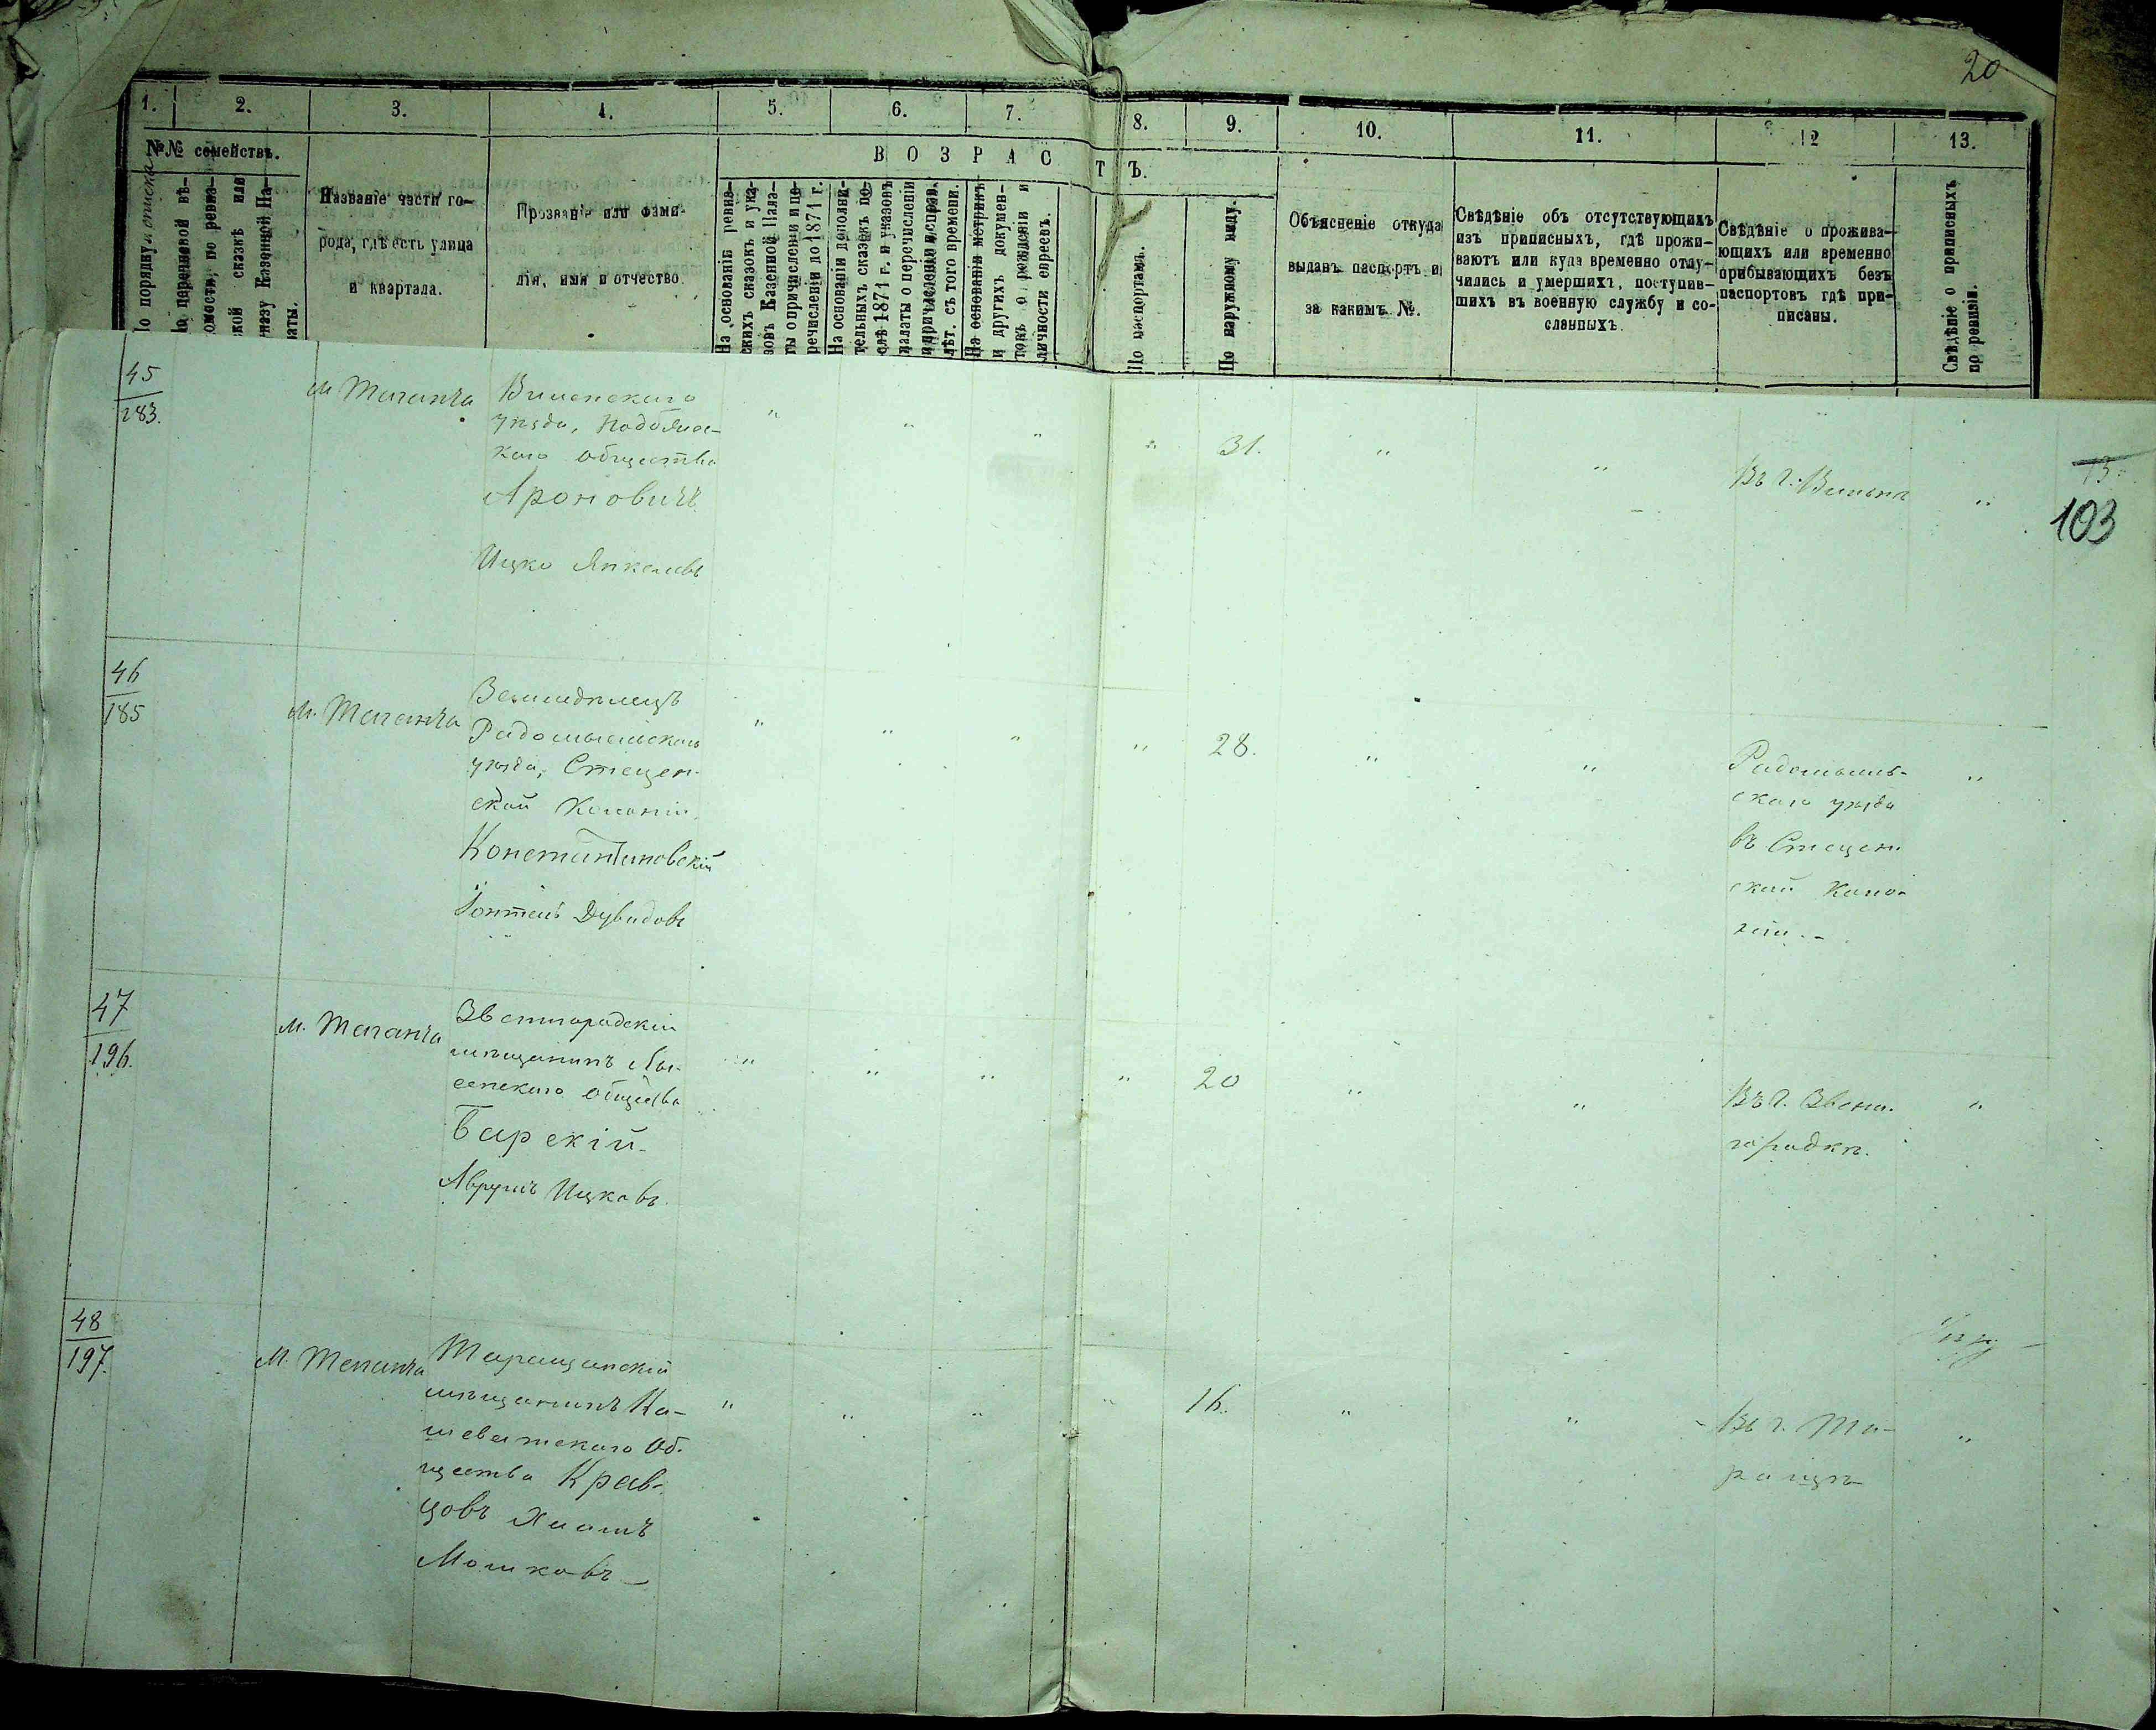 20
1. 2. 3. 4. 5. 6. 7. 8. 9. 10. 11. 12 13.
№№ семействъ.
ВОЗРАСТЪ.
По порядку
Названіе части го-
рода, гдѣ есть улица
и квартала.
Прозваніе или фами-
лія, имя и отчество.
На основаніе ревиз-
скихъ сказокъ и ука-
зовъ Казенной Пала-
ты о причисленіи и пе-
речисленіи до 1871 г.
На основаніи дополни-
тельныхъ сказокъ по-
слѣ 1871 г. и указовъ
палаты о перечисленіи
и причисленіи и справ.
лѣт. съ того времени.
На основаніи метрикъ
и других докумен-
товъ о рожденіи и
личности евреевъ.
По паспортамъ.
По наружному виду.
Объясненіе откуда
выданъ паспортъ и
за какимъ №.
Свѣдѣніе объ отсутствующихъ
изъ приписныхъ, гдѣ прожи-
ваютъ или куда временно отлу-
чились и умершихъ, поступив-
шихъ въ военную службу и со-
сланныхъ.
Свѣдѣніе о прожива-
ющихъ или временно
прибывающихъ безъ
паспортовъ гдѣ при-
писаны.
Свѣдѣніе о приписныхъ
по ревизіи.
45
183.
м Таганча
Виленскаго
уѣзда,
каго общества
Ароновичъ
Ицко Янкелевъ
31.
Въ г. Вильнѣ
103
46
185
м. Таганча
Земледѣлецъ
Радомысльскаго
уѣзда, Стецен-
ской Колоніи
Константиновскій
Дувидовъ
28.
Радомысль-
скаго уѣзда
въ Стецен-
ской Коло-
ніи.-
47
196.
м. Таганча
Звенигородскій
мѣщанинъ Лы-
сенскаго общества
Барскій-
Аврумъ Ицковъ
20
Въ г. Звени-
городкѣ.
48
197.
М. Таганча
Таращанскій
мѣщанинъ Ка-
шеватскаго Об-
щества Крав-
цовъ Хаимъ
Мошковъ-
16.
Въ г. Та-
ращѣ